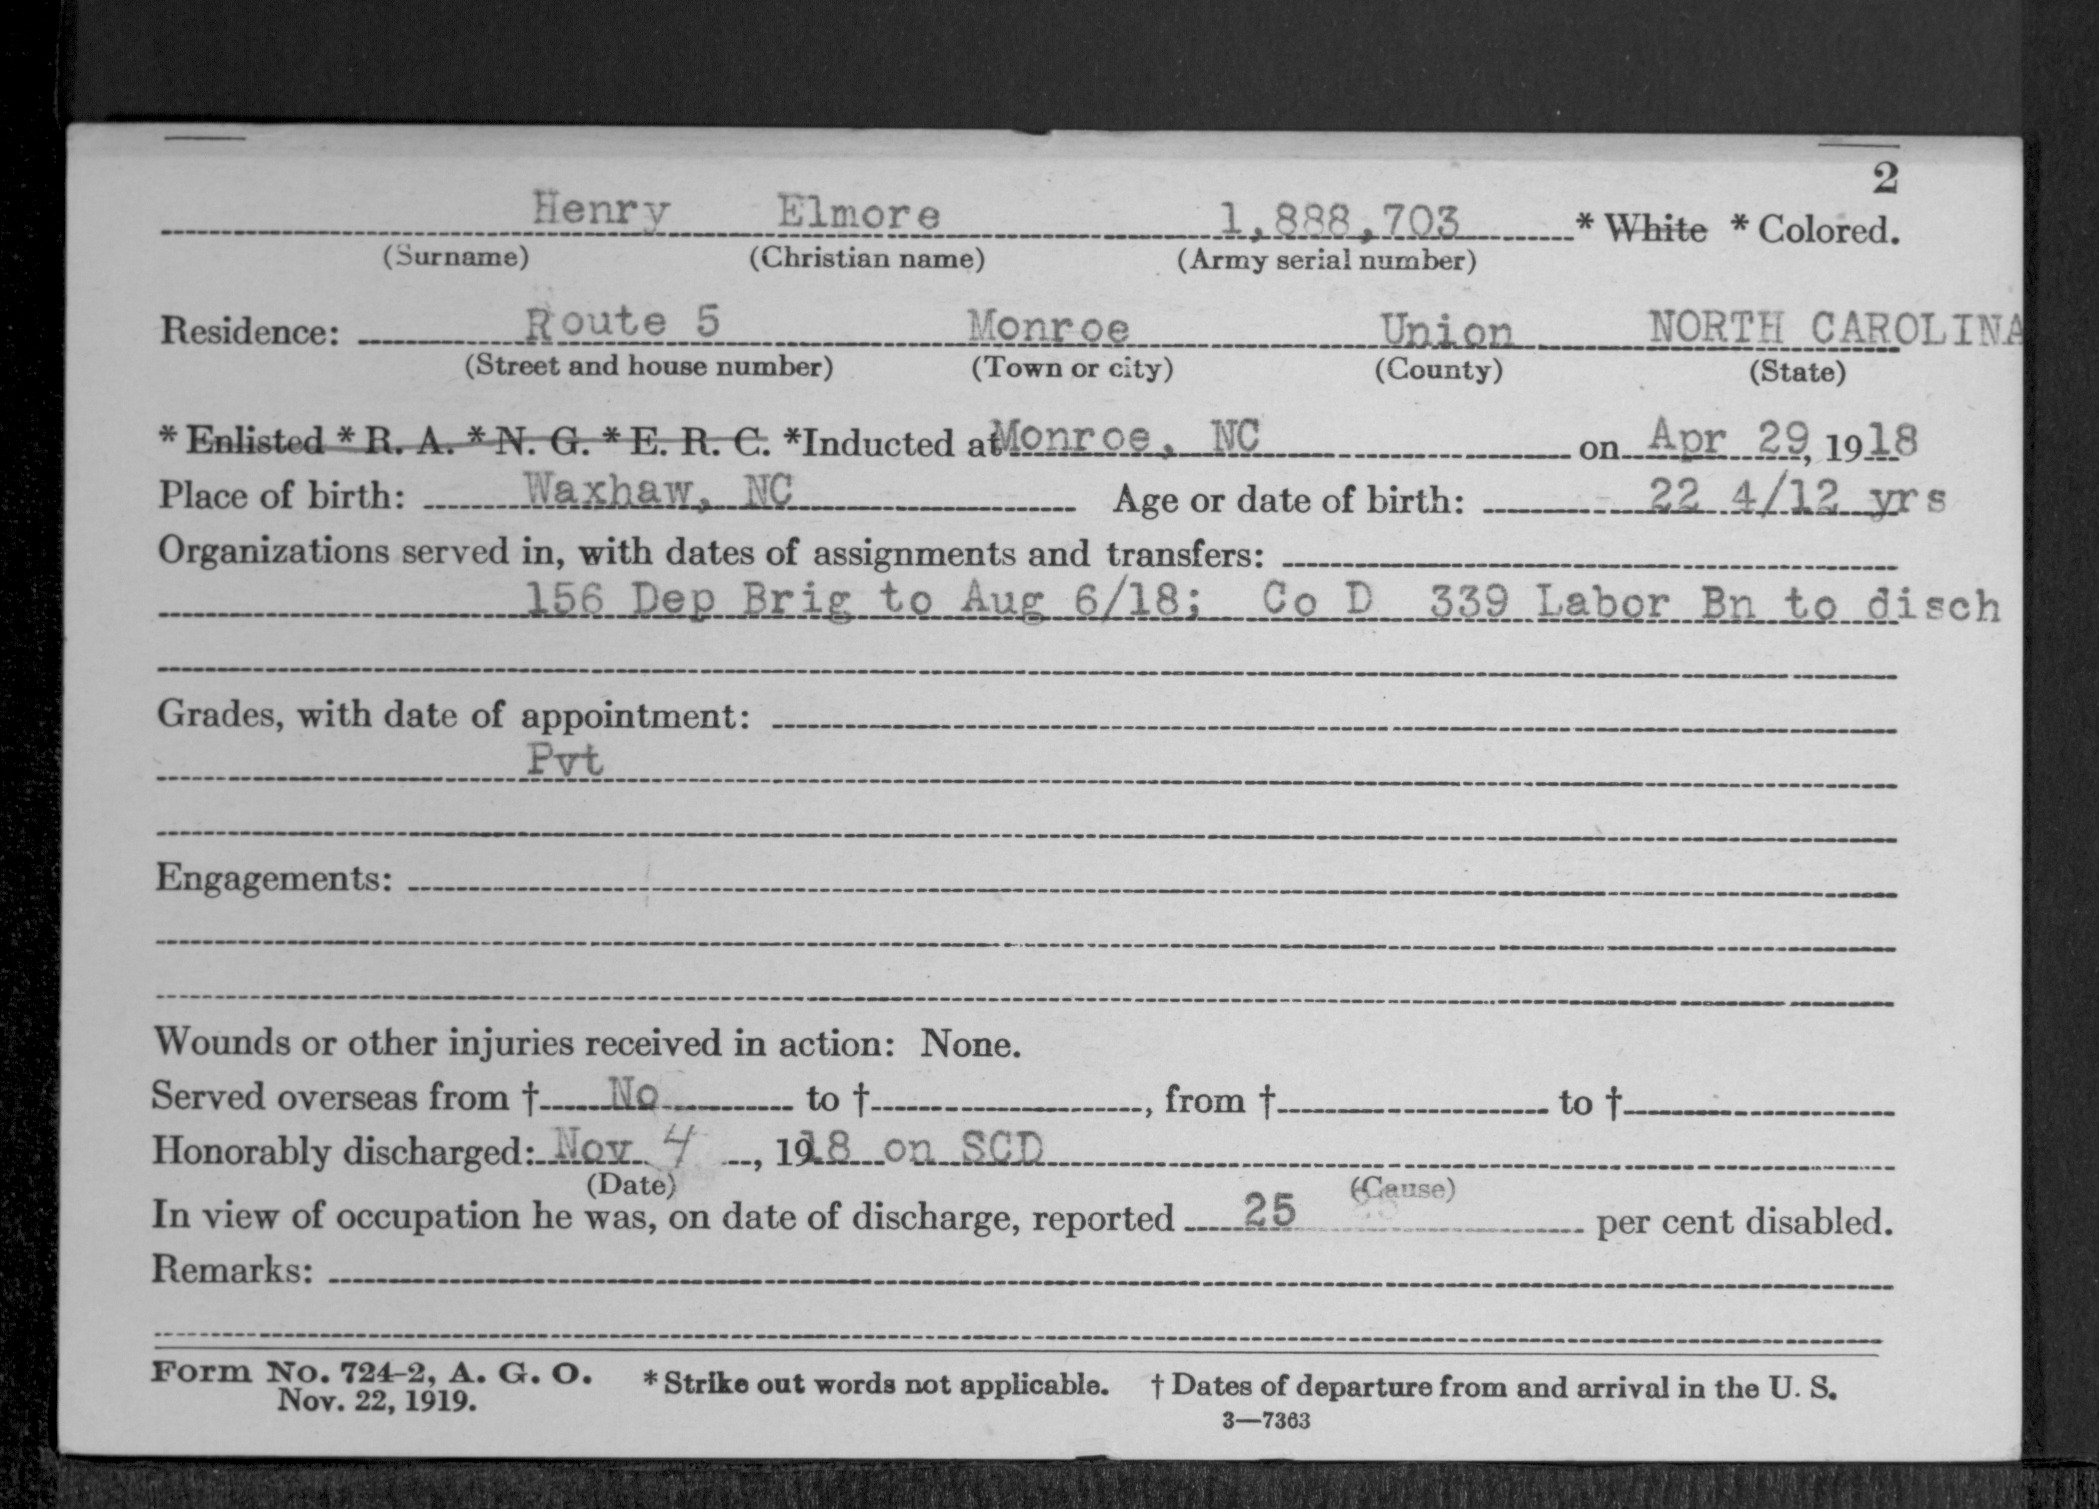 2
Henry Elmore 1,888,703 * White * Colored.
(Surname) (Christian name) (Army serial number)
Residence: Route 5 Monroe Union NORTH CAROLINA
(Street and house number) (Town or city) (County) (State)
* Enlisted * R. A. * N. G. * E. R. C. *Inducted at Monroe, NC on Apr 29, 1918
Place of birth: Waxhaw, NC Age or date of birth: 22 4/12 yrs
Organizations served in, with dates of assignments and transfers:
156 Dep Brig to Aug 6/18; Co D 339 Labor Bn to disch
Grades, with date of appointment:
Pvt
Engagements:
Wounds or other injuries received in action: None.
Served overseas from † No to †, from † to †
Honorably discharged: Nov 4, 1918 on SCD
(Date) (Cause)
In view of occupation he was, on date of discharge, reported 25 per cent disabled.
Remarks:
Form No. 724-2, A. G. O. * Strike out words not applicable. † Dates of departure from and arrival in the U. S.
Nov. 22, 1919.
3—7363